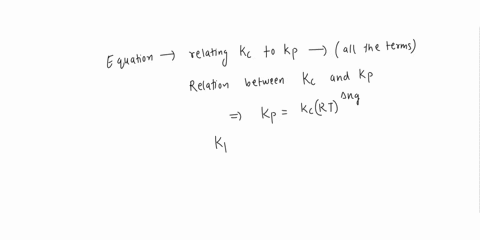 Equation → relating Kc to Kp → (all the terms)
Relation between Kc and Kp
⇒ Kp = Kc(RT)^Δng
K